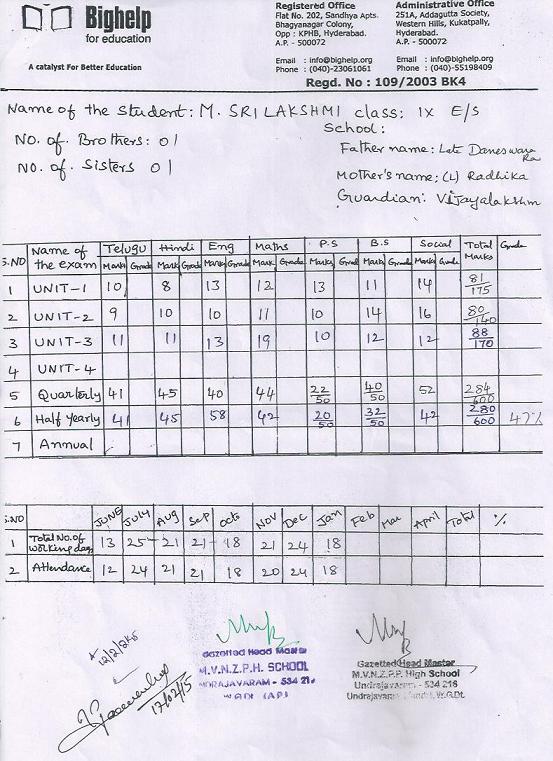 Bighelp
for education
A catalyst For Better Education
Registered Office
Flat No. 202, Sandhya Apts.
Bhagyanagar Colony,
Opp : KPHB, Hyderabad.
A.P. - 500072
Email : info@bighelp.org
Phone : (040)-23061061
Administrative Office
251A, Addagutta Society,
Western Hills, Kukatpally,
Hyderabad.
A.P. - 500072
Email : info@bighelp.org
Phone : (040)-55198409
Regd. No : 109/2003 BK4
Name of the Student: M. SRI LAKSHMI class: IX E/S
School:
NO. of. Brothers: 01
NO. of. Sisters 01
Father name: Late Daneswara Ra
Mother's name: (L) Radhika
Guardian: Vijayalakshm
S.NO Name of the exam Telugu Hindi Eng Maths P.S B.S Social Total Marks Grade
Mark Grade Mark Grade Mark Grade Mark Grade Marks Grad Mark Grade Mark Grade
1 UNIT-1 10 8 13 12 13 11 14 81/175
2 UNIT-2 9 10 10 11 10 14 16 80/140
3 UNIT-3 11 11 13 19 10 12 12 88/170
4 UNIT-4
5 Quarterly 41 45 40 44 22/50 40/50 52 284/600
6 Half Yearly 41 45 58 42 20/50 32/50 42 280/600 47%
7 Annual
S.NO JUNE July Aug Sep Octo Nov Dec Jan Feb Mar April Total %
1 Total No. of working days 13 25 21 21 18 21 24 18
2 Attendance 12 24 21 21 18 20 24 18
17/02/15
Gazetted Head Master
M.V.N.Z.P.H. SCHOOL
UNDRAJAVARAM - 534 216
W.G.Dt. (A.P)
Gazetted Head Master
M.V.N.Z.P.P. High School
Undrajavaram - 534 216
Undrajavaram W.G.Dt.